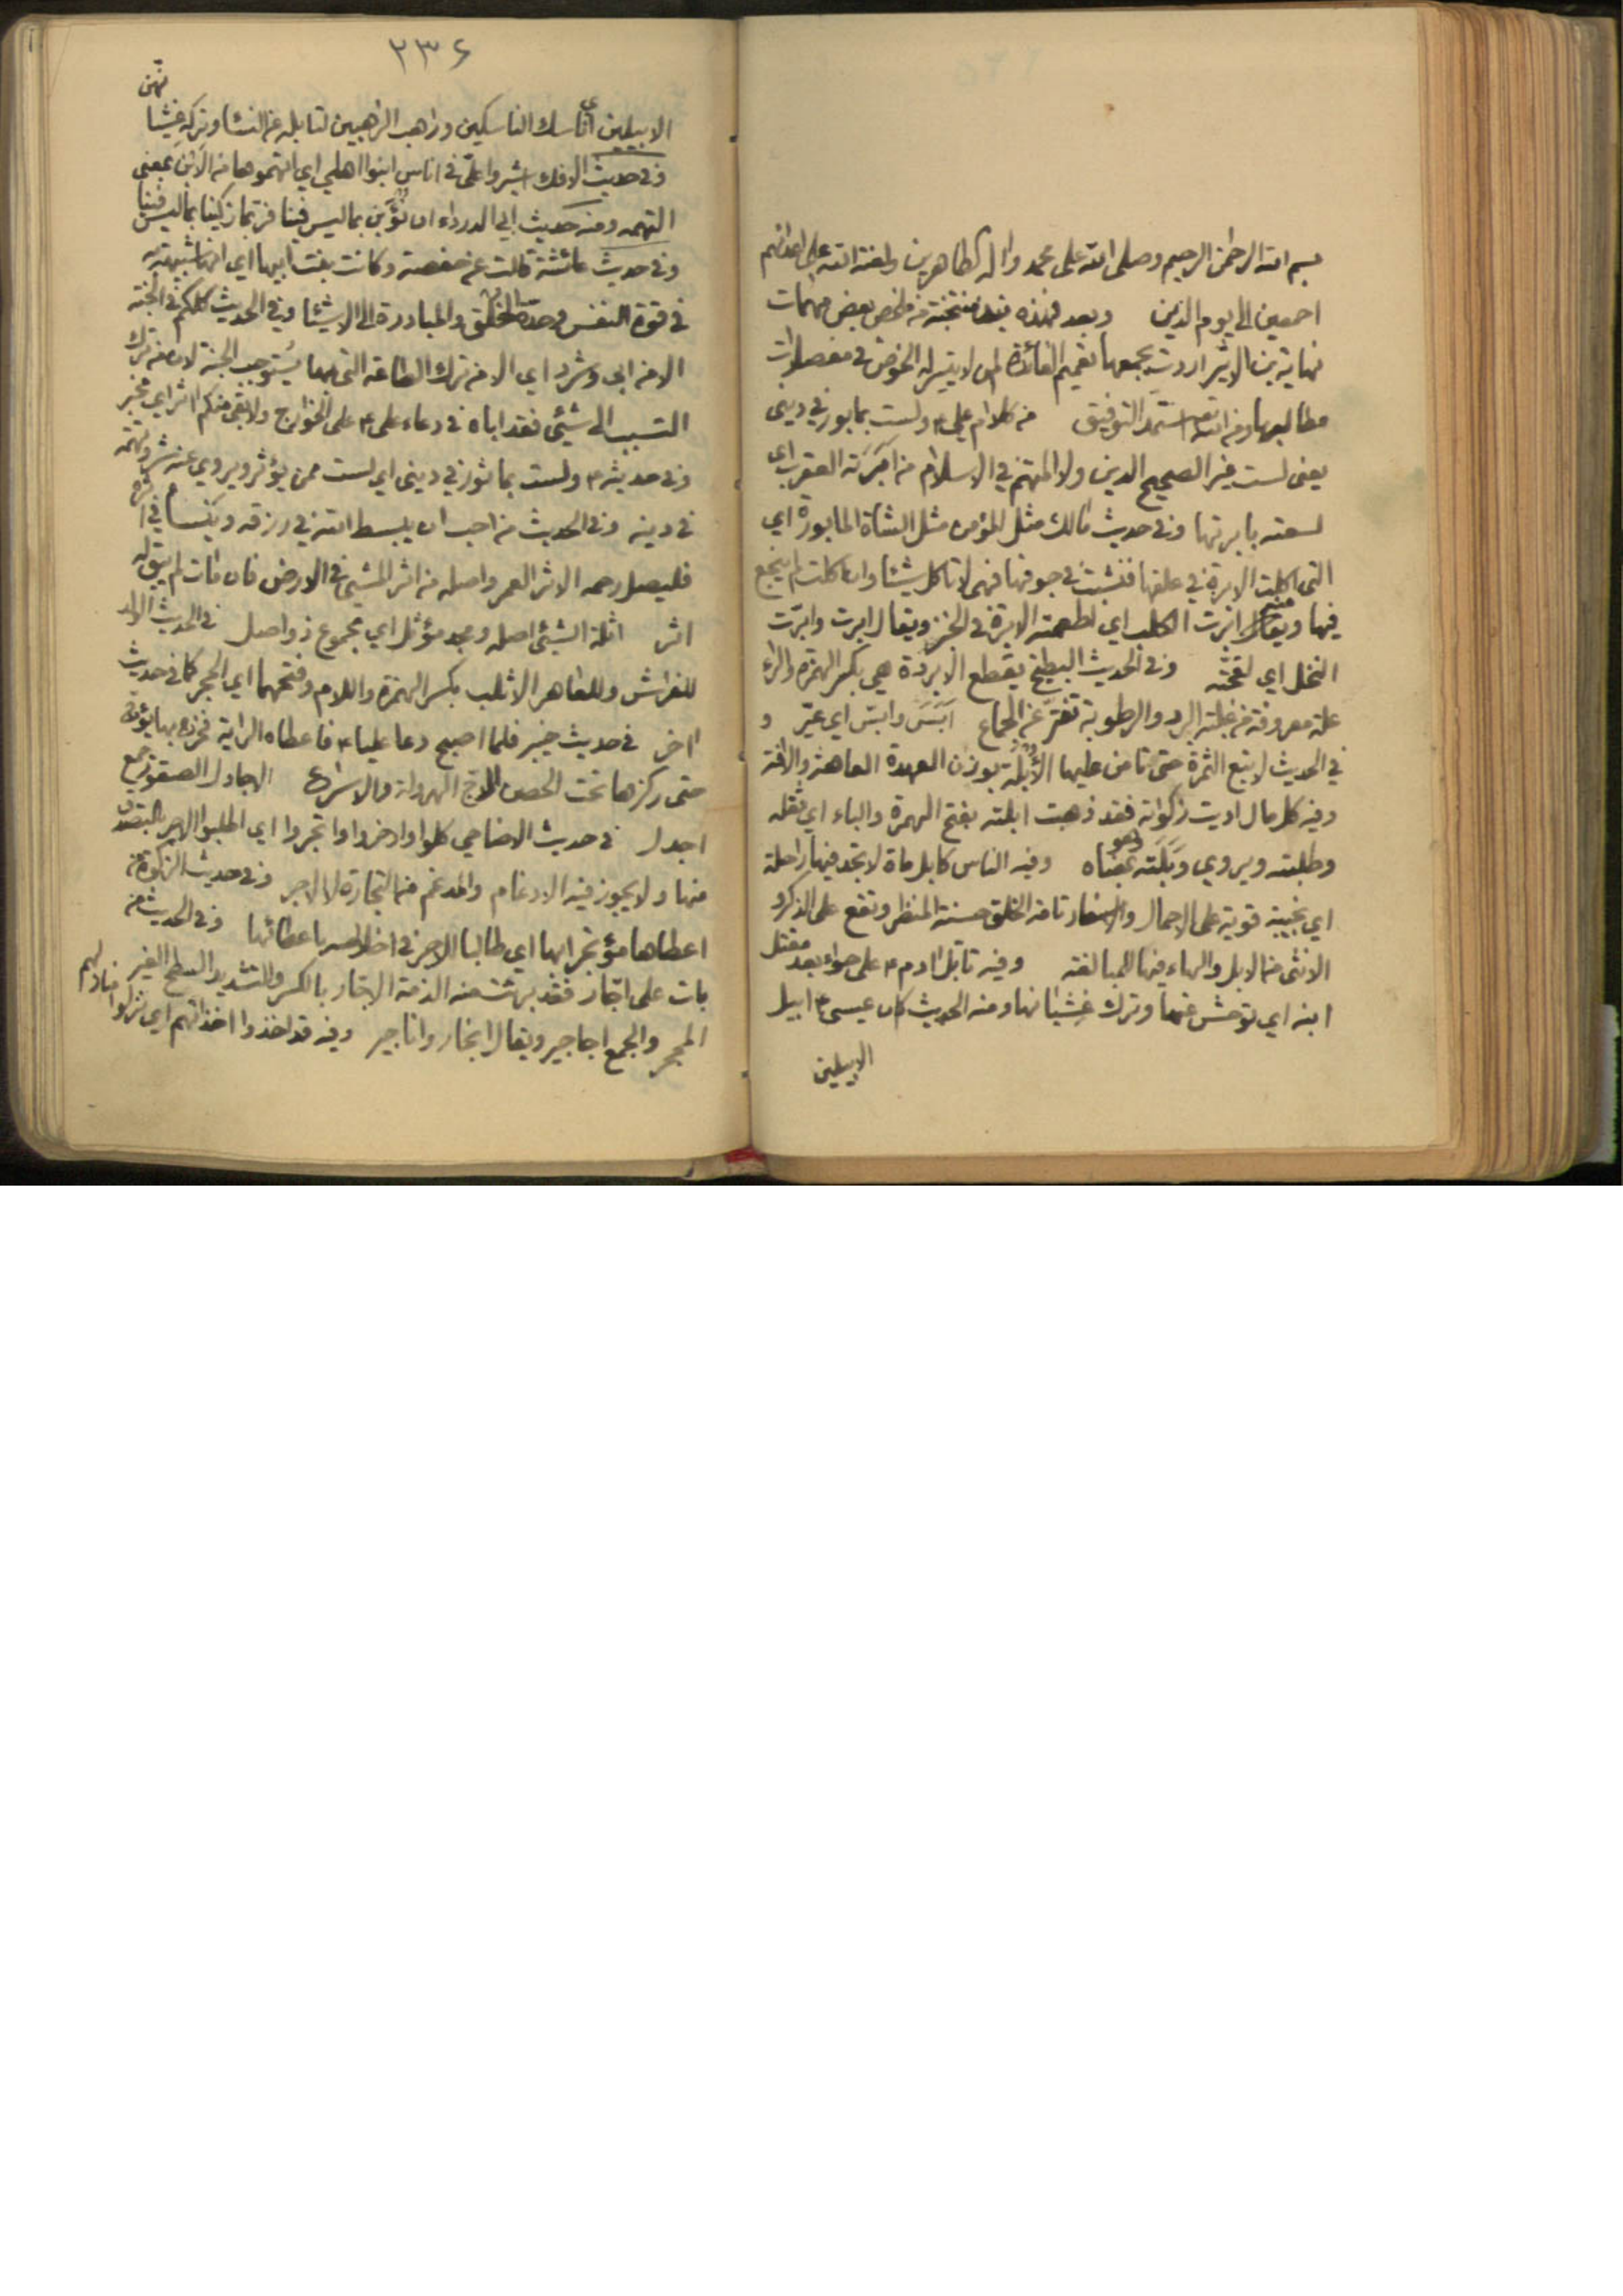 بسم الله الرحمن الرحيم وصلى الله على محمد واله الطاهرين ولعنة الله على اعدائهم
اجمعين الى يوم الدين وبعد فهذه نبذ منتخبة من ملخص بعض مهمات
نهاية بن الاثير اردت بجمعها تعميم الفائدة لمن لا يتيسر له الخوض في مفصلات
مطالبها ومن الله استمد التوفيق من كلام علي ع ولست بمابور في ديني
يعني لست غير الصحيح الدين ولا المتهم في الاسلام من ابرته العقرب اي
لسعته بابرتها وفي حديث مالك مثل المؤمن مثل الشاة المابورة اي
التي اكلت الابرة في علفها فنشبت في جوفها فهي لا تاكل شيئا وان اكلت لم ينجع
فيها ويقال ابرت الكلب اي اطعمته الابرة في الخبز ويقال ابرت وابّرت
النخل اي لقحته وفي الحديث البطيخ يقطع الابردة هي بكسر الهمزة والراء
علة معروفة من غلبة البرد والرطوبة تفتر عن الجماع ابَسَ وابّس اي عيّر و
في الحديث لا تبع الثمرة حتى تامن عليها الأُبْلَة بوزن العهدة العاهة والافة
وفيه كل مال اديت زكوته فقد ذهبت ابلته بفتح الهمزة والباء اي ثقله
وطلبته ويروي وَبَلَته وهو بمعناه وفيه الناس كابل ماة لا تجد فيها راحلة
اي نجيبة قوية على الاحمال والاسفار تامة الخلق حسنة المنظر وتقع على الذكر و
الانثى من الابل والهاء فيها للمبالغة وفيه تابّل ادم ع على حواء بعد مقتل
ابنه اي توحش عنها وترك غشيانها ومنه الحديث كان عيسى ع ابيل
الابيلين
٢٣٤
الابيلين اي ناسك الناسكين وراهب الراهبين لتابله عن النساء وتركه غشيا
نهن
وفي حديث الافك اشيروا علي في اناس ابنوا اهلي اي اتهموها من الابن بمعنى
التهمه ومنه حديث ابي الدرداء ان نُؤبَن بما ليس فينا فربما زكينا بما ليس فينا
وفي حديث عائشة قالت عن حفصة وكانت بنت ابيها اي انها شبيهة به
في قوة النفس وحدة الخلق والمبادرة الى الاشيئا وفي الحديث كلكم في الجنة
الا من ابى وشرد اي الا من ترك الطاعة التي بها يستوجب الجنة لان من ترك
التسبب الى شيئ فقد اباه في دعاء على ع على الخوارج ولا بقي منكم اثر اي مخبر
وفي حديثه ع ولست بماثور في ديني اي لست ممن يؤثر ويروي عنه شر وتهمة
في دينه وفي الحديث من احب ان يبسط الله في رزقه وينسا في اثره
فليصل رحمه الاثر العمر واصله من اثر المشي في الارض فان مات لم يبق له
اثر اثلة الشيئ اصله ومجد مؤثل اي مجموع ذو اصل في الحديث الولد
للفراش وللعاهر الاثلب بكسر الهمزة واللام وفتحهما اي الحجر كما في حديث
اخر في حديث خيبر فلما اصبح دعا عليا ع فاعطاه الراية فخرج بها يؤج
حتى ركزها تحت الحصن الاج الهرولة والاسراع الاجادل الصقور جمع
اجدل في حديث الاضاحي كلوا وادخروا واتجروا اي اطلبوا الاجر بالتصدق
منها ولا يجوز فيه الادغام والمدغم من التجارة لا الاجر وفي حديث الزكوة من
اعطاها مؤتجرا بها اي طالبا للاجر في باعطائها وفي الحديث من
بات على اجّار فقد برئت منه الذمة الاجّار بالكسر والتشديد السطح الغير
المحجر والجمع اجاجير ويقال انجار واناجير وفيه قد اخذوا اخذاتهم اي نزلوا منازلهم